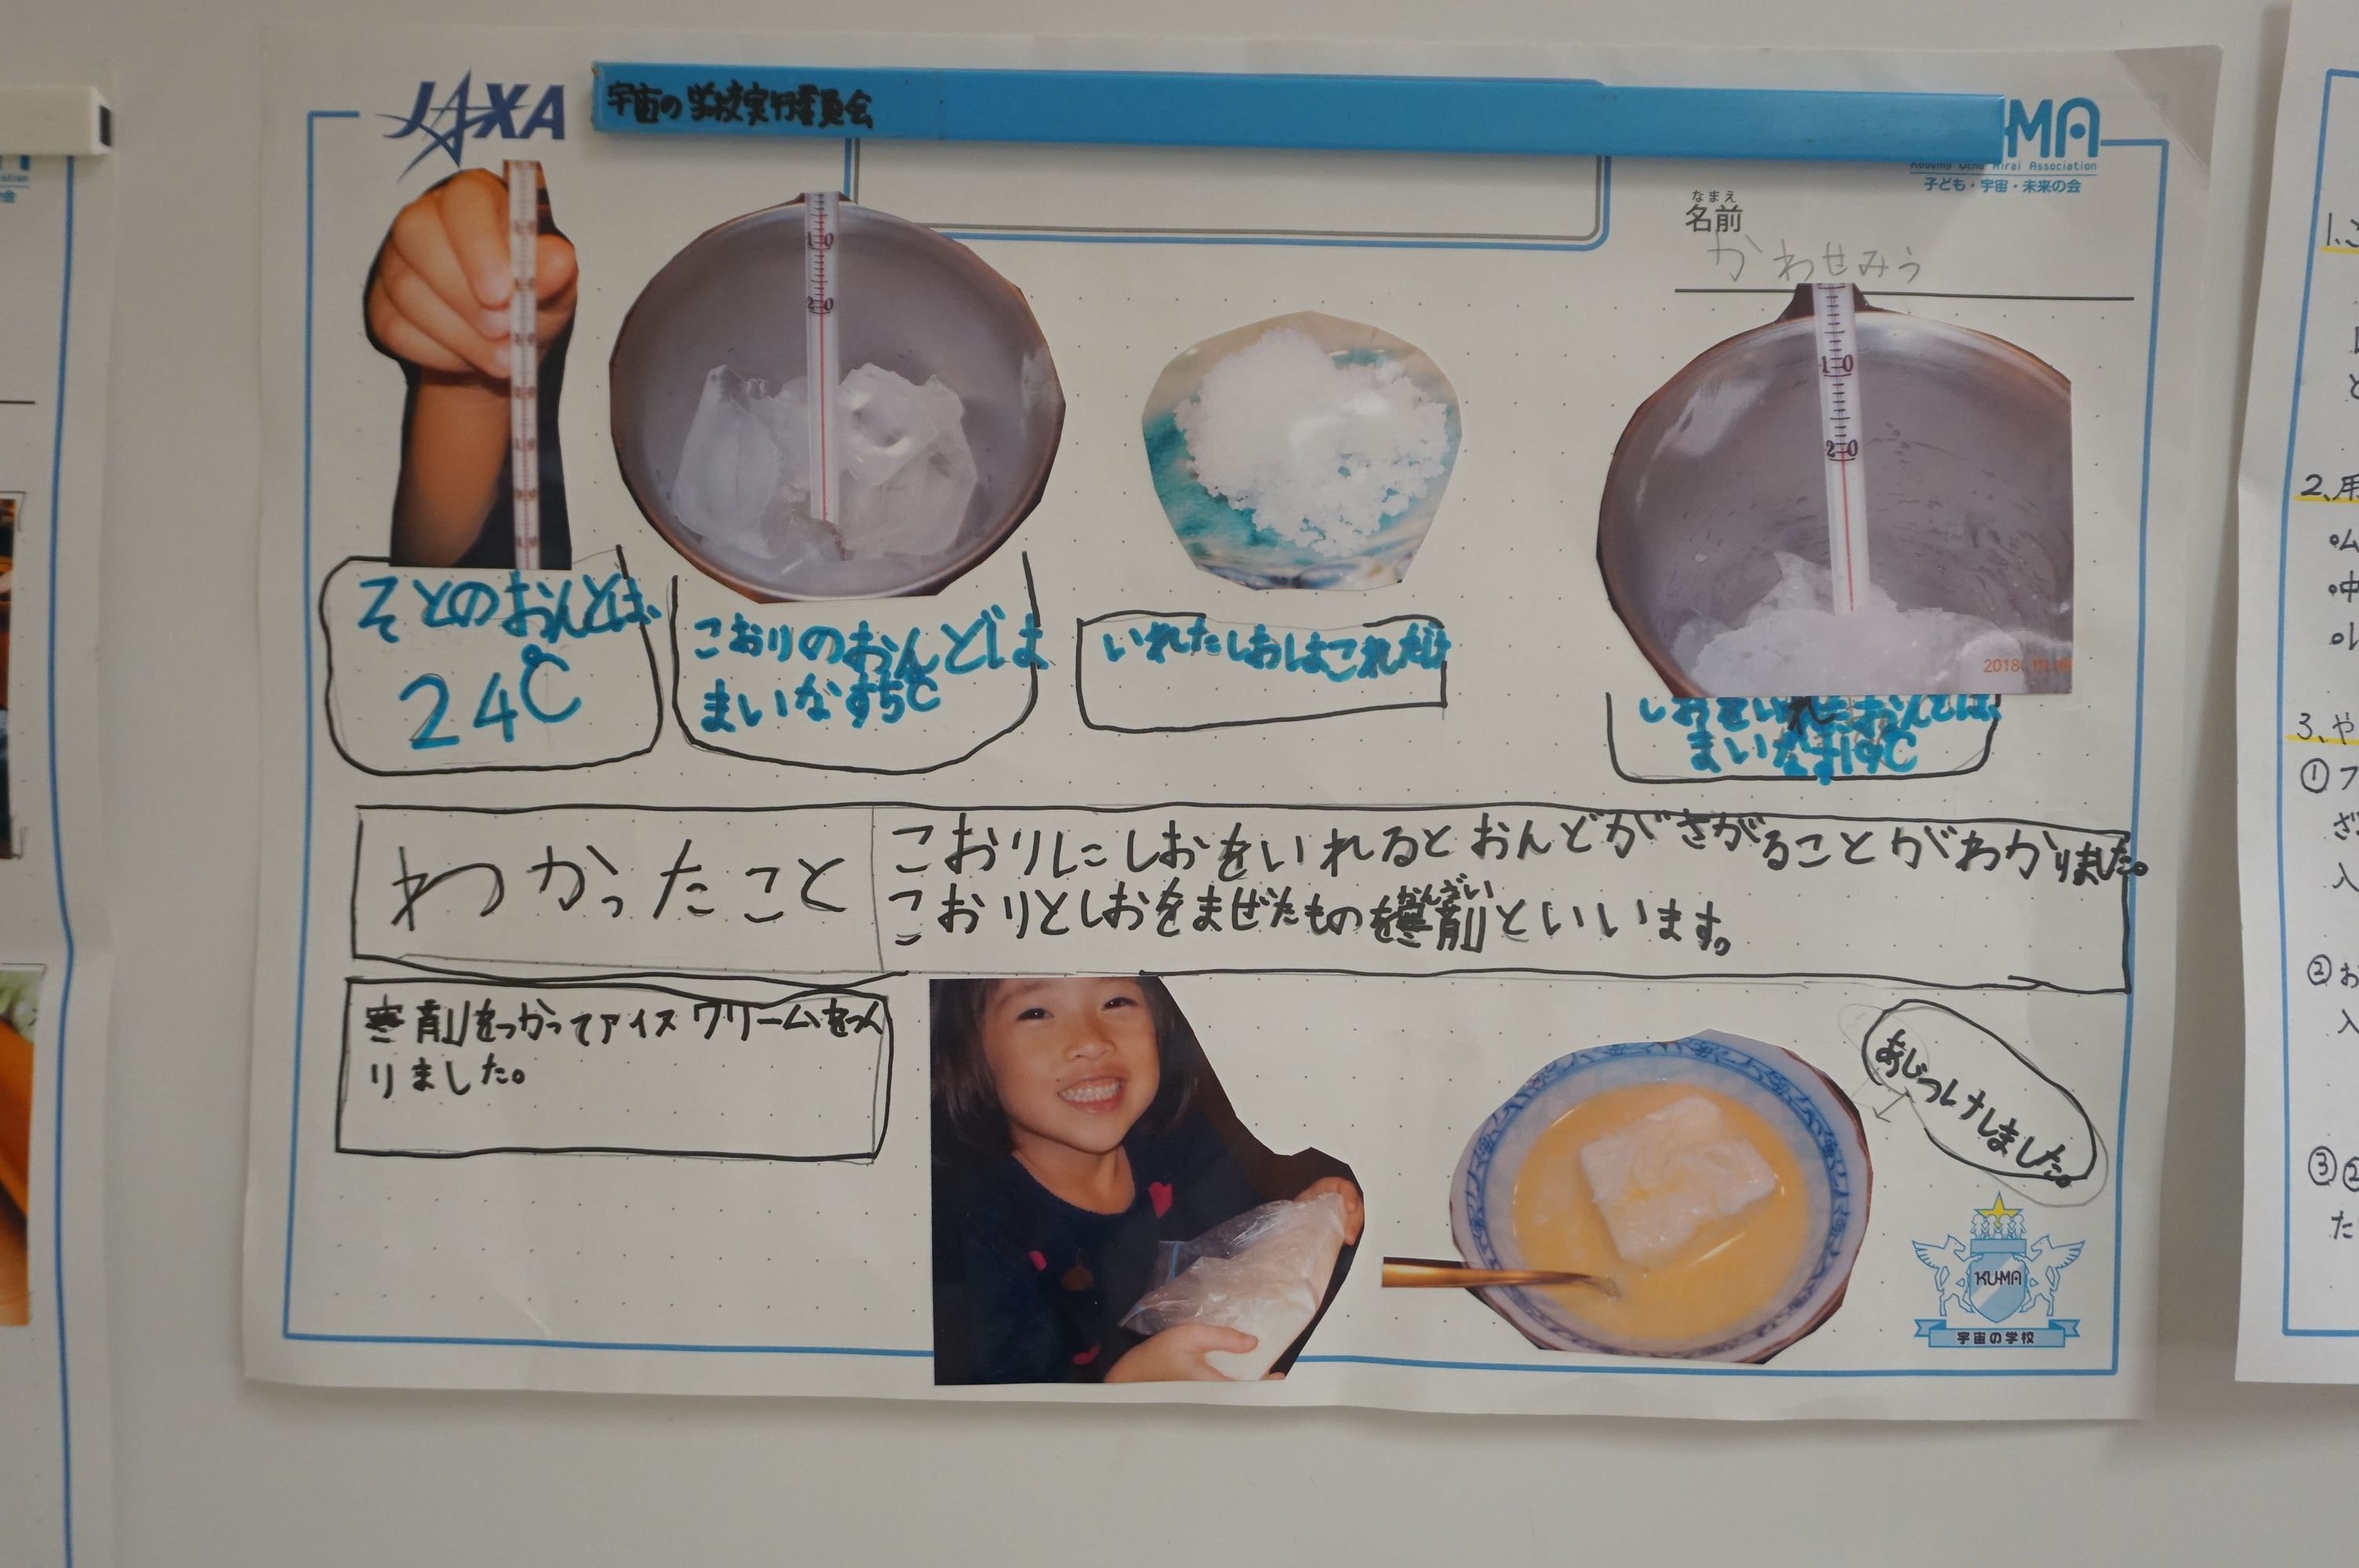 JAXA
宇宙の学校実行委員会
MA
Kodomo Uchu Mirai Association
子ども・宇宙・未来の会
なまえ
名前
かわせみう
1 0
2 0
1 0
2 0
2018
そとのおんどは、
24℃
こおりのおんどは
まいなす5℃
いれたしおはこれだけ
しおをいれたおんどは、
まいなす19℃
わかったこと
こおりにしおをいれるとおんどがさがることがわかりました。
こおりとしおをまぜたものを寒剤といいます。
かんざい
寒剤をつかってアイスクリームをつく
りました。
あじつけしました。
KU-MA
宇宙の学校
1、こ
2、用
3、や
①フ
入
②お
入
③②
た